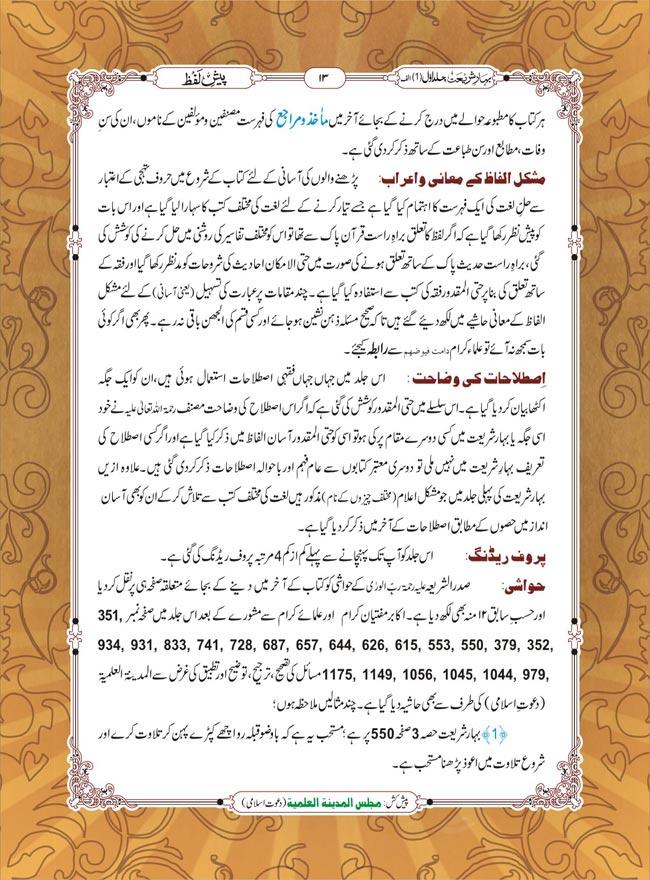 بہارِ شریعت جلد اوّل (1) الف
۱۳
پیش لفظ
ہر کتاب کا مطبوعہ حوالے میں درج کرنے کے بجائے آخر میں مأخذ ومراجع کی فہرست مصنفین ومؤلفین کے ناموں، ان کی سنِ
وفات، مطابع اور سن طباعت کے ساتھ ذکر کر دی گئی ہے۔
مشکل الفاظ کے معانی واعراب: پڑھنے والوں کی آسانی کے لئے کتاب کے شروع میں حروف تہجی کے اعتبار
سے حل لغت کی ایک فہرست کا اہتمام کیا گیا ہے جسے تیار کرنے کے لئے لغت کی مختلف کتب کا سہارا لیا گیا ہے اور اس بات
کو پیش نظر رکھا گیا ہے کہ اگر لفظ کا تعلق براہِ راست قرآن پاک سے تھا تو اس کو مختلف تفاسیر کی روشنی میں حل کرنے کی کوشش کی
گئی، براہِ راست حدیث پاک کے ساتھ تعلق ہونے کی صورت میں حتی الامکان احادیث کی شروحات کو مدنظر رکھا گیا اور فقہ کے
ساتھ تعلق کی بنا پر حتی المقدور فقہ کی کتب سے استفادہ کیا گیا ہے۔ چند مقامات پر عبارت کی تسہیل (یعنی آسانی) کے لئے مشکل
الفاظ کے معانی حاشیے میں لکھ دیئے گئے ہیں تاکہ صحیح مسئلہ ذہن نشین ہو جائے اور کسی قسم کی الجھن باقی نہ رہے۔ پھر بھی اگر کوئی
بات سمجھ نہ آئے تو علماء کرام دامت فیوضہم سے رابطہ کیجئے۔
اصطلاحات کی وضاحت: اس جلد میں جہاں جہاں فقہی اصطلاحات استعمال ہوئی ہیں، ان کو ایک جگہ
اکٹھا بیان کر دیا گیا ہے۔ اس سلسلے میں حتی المقدور کوشش کی گئی ہے کہ اگر اس اصطلاح کی وضاحت مصنف رحمۃ اللہ تعالیٰ علیہ نے خود
اسی جگہ یا بہار شریعت میں کسی دوسرے مقام پر کی ہو تو اسی کو حتی المقدور آسان الفاظ میں ذکر کیا گیا ہے اور اگر کسی اصطلاح کی
تعریف بہار شریعت میں نہیں ملی تو دوسری معتبر کتابوں سے عام فہم اور باحوالہ اصطلاحات ذکر کر دی گئی ہیں۔ علاوہ ازیں
بہار شریعت کی پہلی جلد میں جو مشکل اعلام (مختلف چیزوں کے نام) مذکور ہیں لغت کی مختلف کتب سے تلاش کر کے ان کو بھی آسان
انداز میں حصوں کے مطابق اصطلاحات کے آخر میں ذکر کر دیا گیا ہے۔
پروف ریڈنگ: اس جلد کو آپ تک پہنچانے سے پہلے کم از کم 4 مرتبہ پروف ریڈنگ کی گئی ہے۔
حواشی: صدر الشریعہ علیہ رحمۃ ربّ الورٰی کے حواشی کو کتاب کے آخر میں دینے کے بجائے متعلقہ صفحہ ہی پر نقل کر دیا
اور حسبِ سابق ۱۲ منہ بھی لکھ دیا ہے۔ اکابر مفتیان کرام اور علمائے کرام سے مشورے کے بعد اس جلد میں صفحہ نمبر 351,
934, 931, 833, 741, 728, 687, 657, 644, 626, 615, 553, 550, 379, 352,
1175, 1149, 1056, 1045, 1044, 979, مسائل کی تصحیح، ترجیح، توضیح اور تطبیق کی غرض سے المدینۃ العلمیۃ
(دعوتِ اسلامی) کی طرف سے بھی حاشیہ دیا گیا ہے۔ چند مثالیں ملاحظہ ہوں؛
﴿1﴾ بہار شریعت حصہ 3 صفحہ 550 پر ہے؛ مستحب یہ ہے کہ باوضو قبلہ رو اچھے کپڑے پہن کر تلاوت کرے اور
شروع تلاوت میں اعوذ پڑھنا مستحب ہے۔
پیش کش: مجلس المدینة العلمیة (دعوت اسلامی)